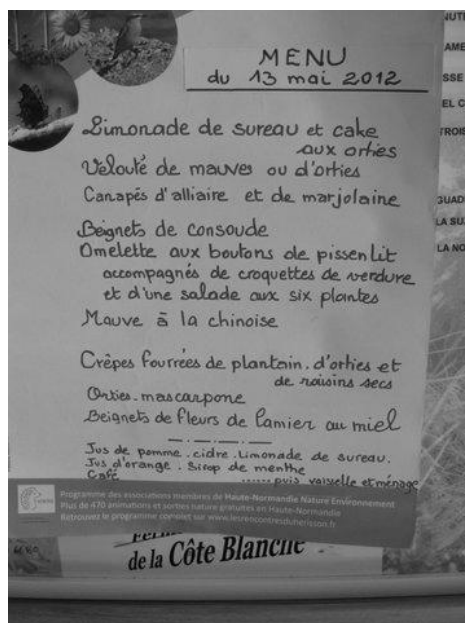 MENU
du 13 mai 2012
Limonade de sureau et cake
aux orties
Velouté de mauves ou d'orties
Canapés d'alliaire et de marjolaine
Beignets de consoude
Omelette aux boutons de pissenlit
accompagnés de croquettes de verdure
et d'une salade aux six plantes
Mauve à la chinoise
Crêpes fourrées de plantain. d'orties et
de raisins secs
Orties. mascarpone
Beignets de fleurs de lamier au miel
Jus de pomme. cidre. Limonade de sureau.
Jus d'orange. Sirop de menthe
Café ......puis vaisselle et ménage
Programme des associations membres de Haute-Normandie Nature Environnement
Plus de 470 animations et sorties nature gratuites en Haute-Normandie
Retrouvez le programme complet sur www.lesrencontresduherisson.fr
de la Côte Blanche
AME
SSE
EL C
TROIS
GUAD
LA SU
LA NO